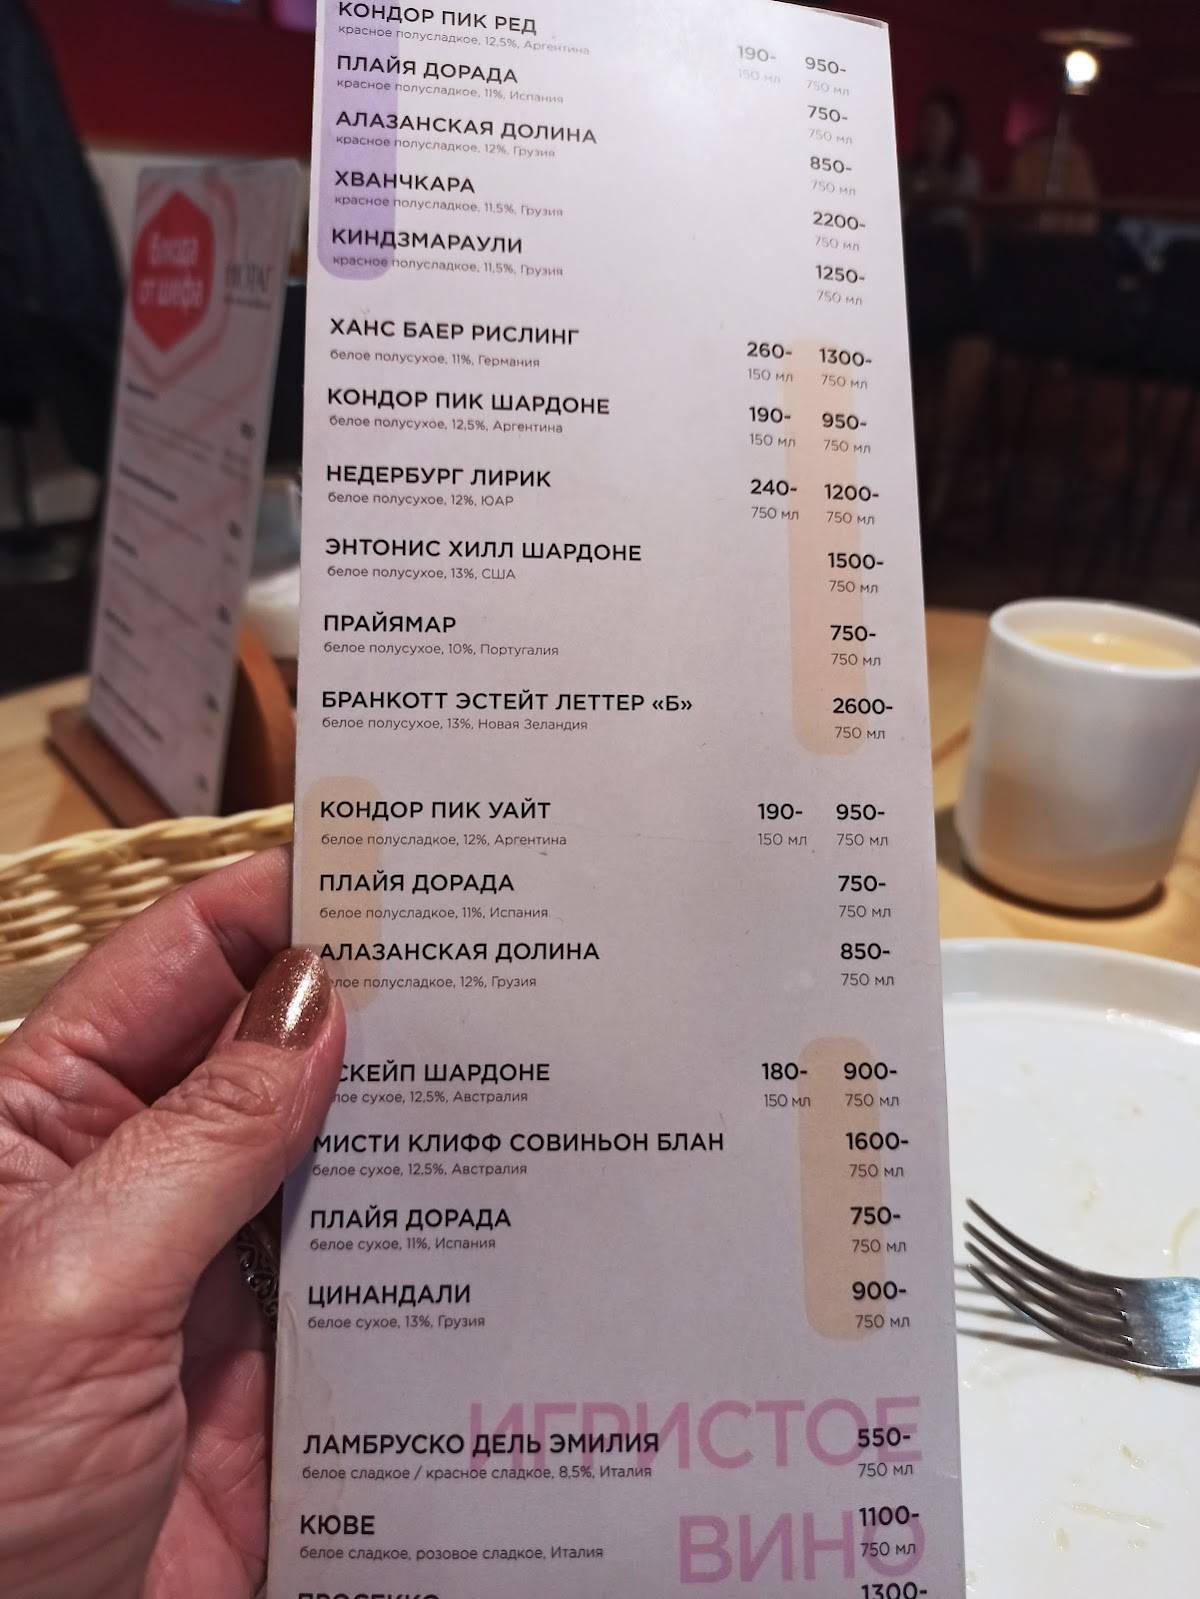 КОНДОР ПИК РЕД
красное полусладкое, 12,5%, Аргентина
190- 950-
150 мл 750 мл
ПЛАЙЯ ДОРАДА
красное полусладкое, 11%, Испания
750-
750 мл
АЛАЗАНСКАЯ ДОЛИНА
красное полусладкое, 12%, Грузия
850-
750 мл
ХВАНЧКАРА
красное полусладкое, 11,5%, Грузия
2200-
750 мл
КИНДЗМАРАУЛИ
красное полусладкое, 11,5%, Грузия
1250-
750 мл
ХАНС БАЕР РИСЛИНГ
260- 1300-
белое полусухое, 11%, Германия
150 мл 750 мл
КОНДОР ПИК ШАРДОНЕ
190- 950-
белое полусухое, 12,5%, Аргентина
150 мл 750 мл
НЕДЕРБУРГ ЛИРИК
240- 1200-
белое полусухое, 12%, ЮАР
750 мл 750 мл
ЭНТОНИС ХИЛЛ ШАРДОНЕ
1500-
белое полусухое, 13%, США
750 мл
ПРАЙЯМАР
750-
белое полусухое, 10%, Португалия
750 мл
БРАНКОТТ ЭСТЕЙТ ЛЕТТЕР «Б»
2600-
белое полусухое, 13%, Новая Зеландия
750 мл
КОНДОР ПИК УАЙТ
190- 950-
белое полусладкое, 12%, Аргентина
150 мл 750 мл
ПЛАЙЯ ДОРАДА
750-
белое полусладкое, 11%, Испания
750 мл
АЛАЗАНСКАЯ ДОЛИНА
850-
елое полусладкое, 12%, Грузия
750 мл
СКЕЙП ШАРДОНЕ
180- 900-
лое сухое, 12,5%, Австралия
150 мл 750 мл
МИСТИ КЛИФФ СОВИНЬОН БЛАН
1600-
белое сухое, 12,5%, Австралия
750 мл
ПЛАЙЯ ДОРАДА
750-
белое сухое, 11%, Испания
750 мл
ЦИНАНДАЛИ
900-
белое сухое, 13%, Грузия
750 мл
ИГРИСТОЕ
ВИНО
ЛАМБРУСКО ДЕЛЬ ЭМИЛИЯ
550-
белое сладкое / красное сладкое, 8,5%, Италия
750 мл
КЮВЕ
1100-
белое сладкое, розовое сладкое, Италия
750 мл
ПРОСЕККО
1300-
блюда
от шефа